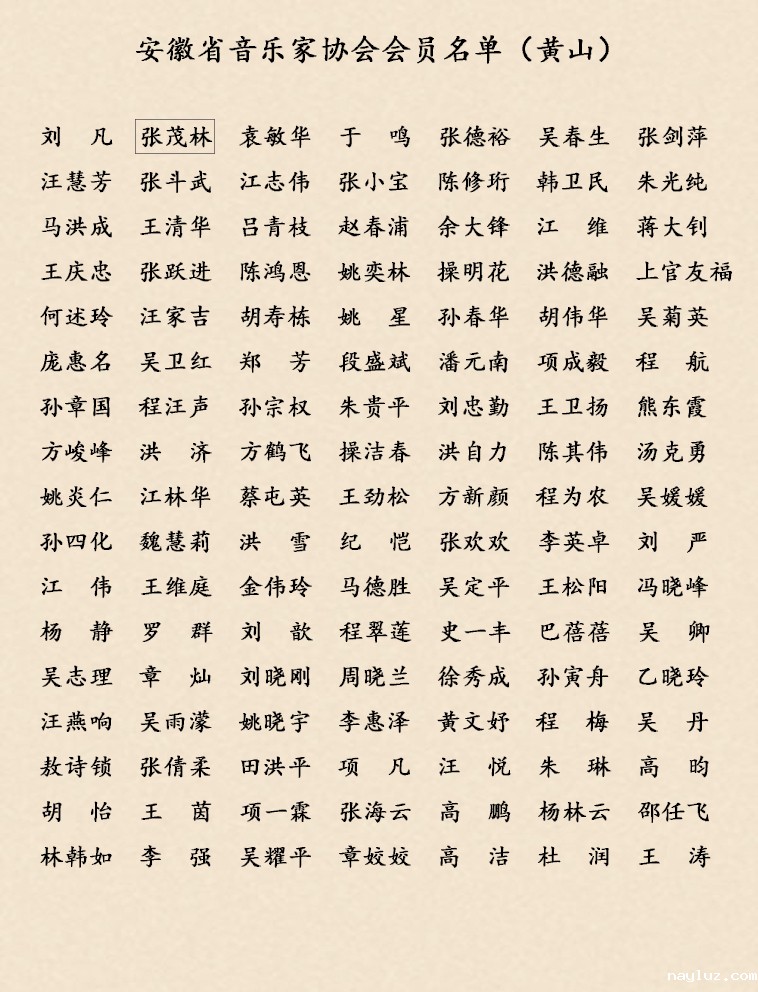 安徽省音乐家协会会员名单（黄山）
刘　凡 张茂林 袁敏华 于　鸣 张德裕 吴春生 张剑萍
汪慧芳 张斗武 江志伟 张小宝 陈修珩 韩卫民 朱光纯
马洪成 王清华 吕青枝 赵春浦 余大锋 江　维 蒋大钊
王庆忠 张跃进 陈鸿恩 姚奕林 操明花 洪德融 上官友福
何述玲 汪家吉 胡寿栋 姚　星 孙春华 胡伟华 吴菊英
庞惠名 吴卫红 郑　芳 段盛斌 潘元南 项成毅 程　航
孙章国 程汪声 孙宗权 朱贵平 刘忠勤 王卫扬 熊东霞
方峻峰 洪　济 方鹤飞 操洁春 洪自力 陈其伟 汤克勇
姚炎仁 江林华 蔡屯英 王劲松 方新颜 程为农 吴媛媛
孙四化 魏慧莉 洪　雪 纪　恺 张欢欢 李英卓 刘　严
江　伟 王维庭 金伟玲 马德胜 吴定平 王松阳 冯晓峰
杨　静 罗　群 刘　歆 程翠莲 史一丰 巴蓓蓓 吴　卿
吴志理 章　灿 刘晓刚 周晓兰 徐秀成 孙寅舟 乙晓玲
汪燕响 吴雨濛 姚晓宇 李惠泽 黄文妤 程　梅 吴　丹
敖诗锁 张倩柔 田洪平 项　凡 汪　悦 朱　琳 高　昀
胡　怡 王　茵 项一霖 张海云 高　鹏 杨林云 邵任飞
林韩如 李　强 吴耀平 章姣姣 高　洁 杜　润 王　涛
nayluz.com